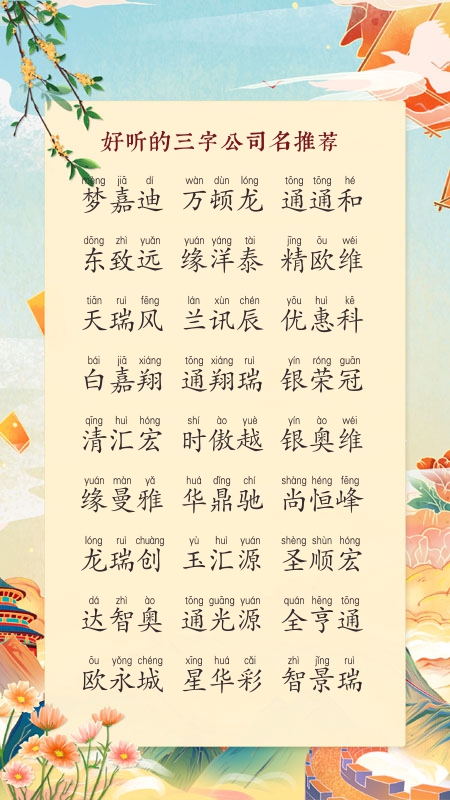 好听的三字公司名推荐
mèng jiā dí wàn dùn lóng tōng tōng hé
梦嘉迪 万顿龙 通通和
dōng zhì yuǎn yuán yáng tài jīng ōu wéi
东致远 缘洋泰 精欧维
tiān ruì fēng lán xùn chén yōu huì kē
天瑞风 兰讯辰 优惠科
bái jiā xiáng tōng xiáng ruì yín róng guān
白嘉翔 通翔瑞 银荣冠
qīng huì hóng shí ào yuè yín ào wéi
清汇宏 时傲越 银奥维
yuán màn yǎ huá dǐng chí shàng héng fēng
缘曼雅 华鼎驰 尚恒峰
lóng ruì chuàng yù huì yuán shèng shùn hóng
龙瑞创 玉汇源 圣顺宏
dá zhì ào tōng guāng yuán quán hēng tōng
达智奥 通光源 全亨通
ōu yǒng chéng xīng huá cǎi zhì jǐng ruì
欧永城 星华彩 智景瑞